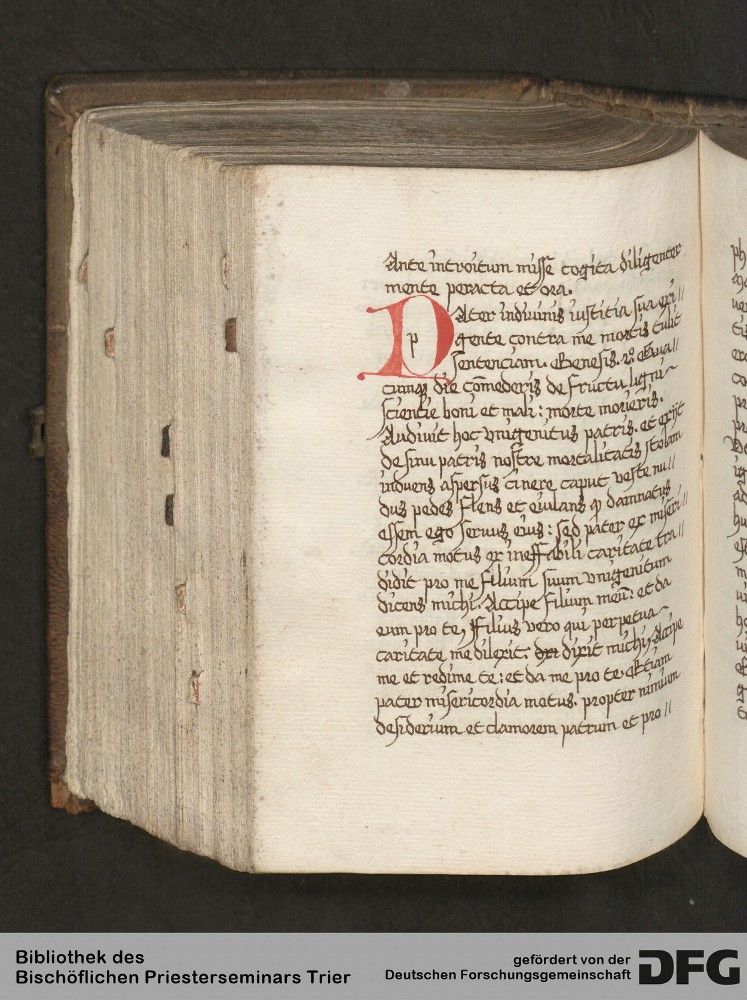 Ante introitum misse cogita diligenter
mente peracta et ora.
Pater indiuinis iustitia sua exi//
p
gente contra me mortis tulit
sententiam. Genesis. 2o Qua//
cumqꝫ die cōmederis de fructu ligni
scientie boni et mali: morte morieris.
Audiuit hoc vnigenitus patris. et exijt
de sinu patris nostre mortalitatis stolam
induens aspersus cinere caput veste nu//
dus pedes flens et eiulans ꝙ damnatus
essem ego seruus eius: sed pater ex miseri//
cordia motus ex ineffabili caritate tra//
didit pro me filium suum vnigenitum
dicens michi. Accipe filium meū: et da
eum pro te, ffilius vero qui perpetua
caritate me dilexit. dixit michi, Accipe
me et redime te: et da me pro te. Etiam
pater misericordia motus. propter nimium
desiderium et clamorem patrum et pro//
Bibliothek des
Bischöflichen Priesterseminars Trier
gefördert von der
Deutschen Forschungsgemeinschaft
DFG